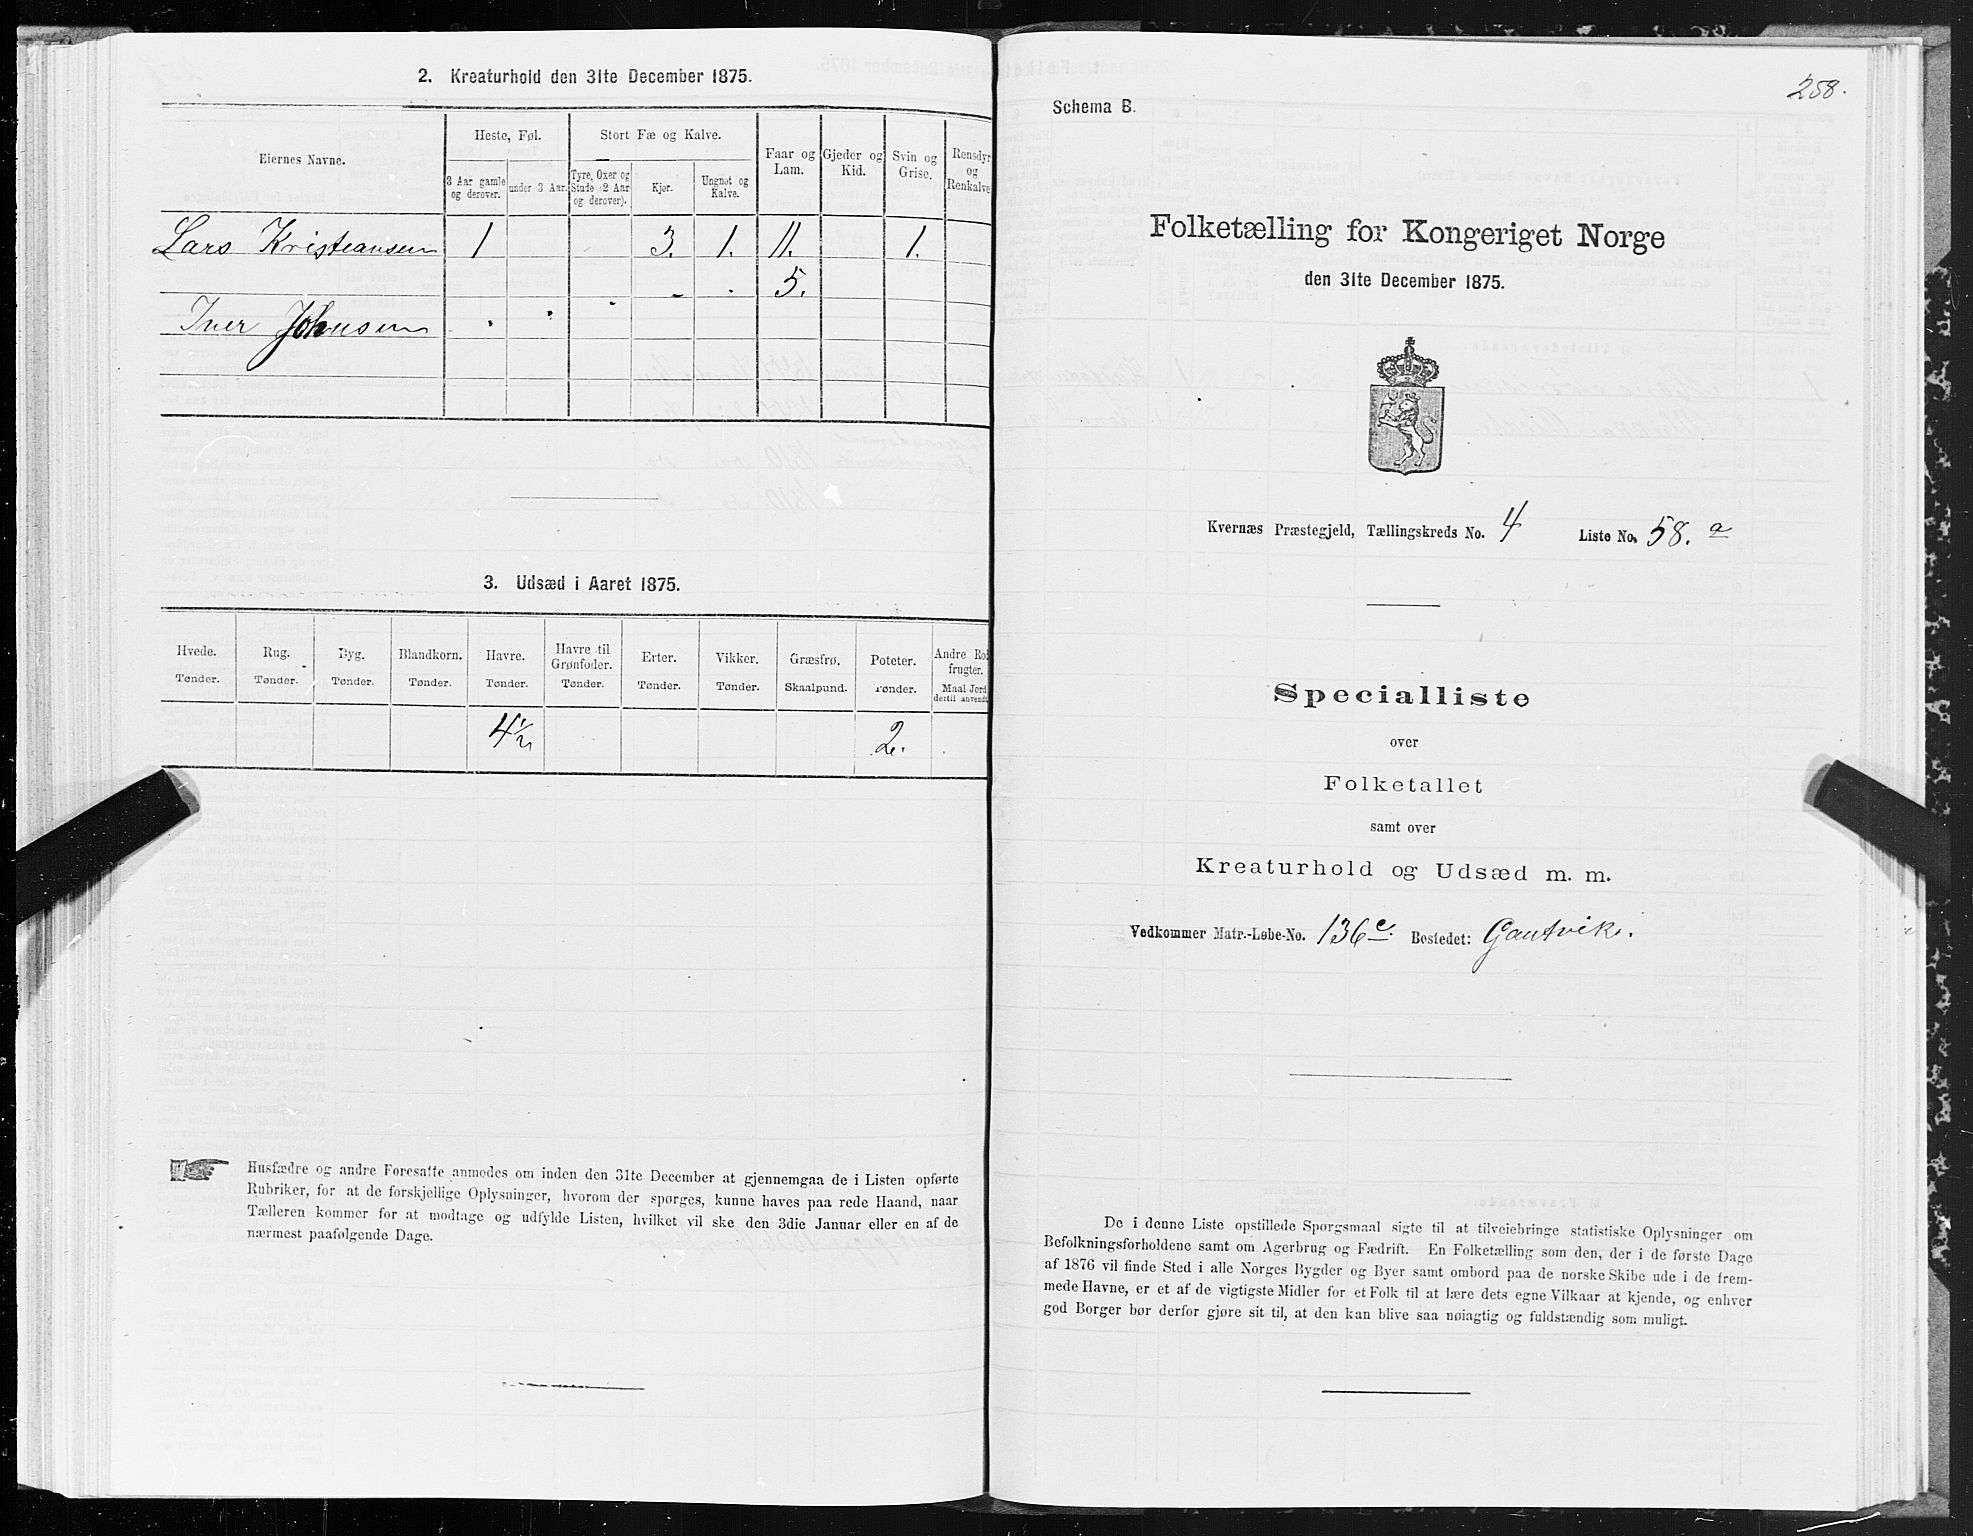 2. Kreaturhold den 31te December 1875.
Eiernes Navne.
Heste, Føl.
Stort Fæ og Kalve.
Faar og Lam.
Gjeder og Kid.
Svin og Grise.
Rensdyr og Renkalve
3 Aar gamle og derover.
under 3 Aar.
Tyre, Oxer og Stude (2 Aar og derover).
Kjør.
Ungnøt og Kalve.
Lars Kristeansen 1 3. 1. 11. 1.
5.
Iver Johnsen
3. Udsæd i Aaret 1875.
Hvede. Rug. Byg. Blandkorn. Havre. Havre til Grønfoder. Erter. Vikker. Græsfrø. Poteter. Andre Rodfrugter.
Tønder. Tønder. Tønder. Tønder. Tønder. Tønder. Tønder. Tønder. Skaalpund. Tønder. Maal Jord dertil anvendt
4½ 2.
Husfædre og andre Foresatte anmodes om inden den 31te December at gjennemgaa de i Listen opførte
Rubriker, for at de forskjellige Oplysninger, hvorom der spørges, kunne haves paa rede Haand, naar
Tælleren kommer for at modtage og udfylde Listen, hvilket vil ske den 3die Januar eller en af de
nærmest paafølgende Dage.
258.
Schema B.
Folketælling for Kongeriget Norge
den 31te December 1875.
Kvernæs Præstegjeld, Tællingskreds No. 4 Liste No. 58. a
Specialliste
over
Folketallet
samt over
Kreaturhold og Udsæd m. m.
Vedkommer Matr.-Løbe-No. 136c. Bostedet: Gautvik.
De i denne Liste opstillede Spørgsmaal sigte til at tilveiebringe statistiske Oplysninger om
Befolkningsforholdene samt om Agerbrug og Fædrift. En Folketælling som den, der i de første Dage
af 1876 vil finde Sted i alle Norges Bygder og Byer samt ombord paa de norske Skibe ude i de frem-
mede Havne, er et af de vigtigste Midler for et Folk til at lære dets egne Vilkaar at kjende, og enhver
god Borger bør derfor gjøre sit til, at den kan blive saa nøiagtig og fuldstændig som muligt.